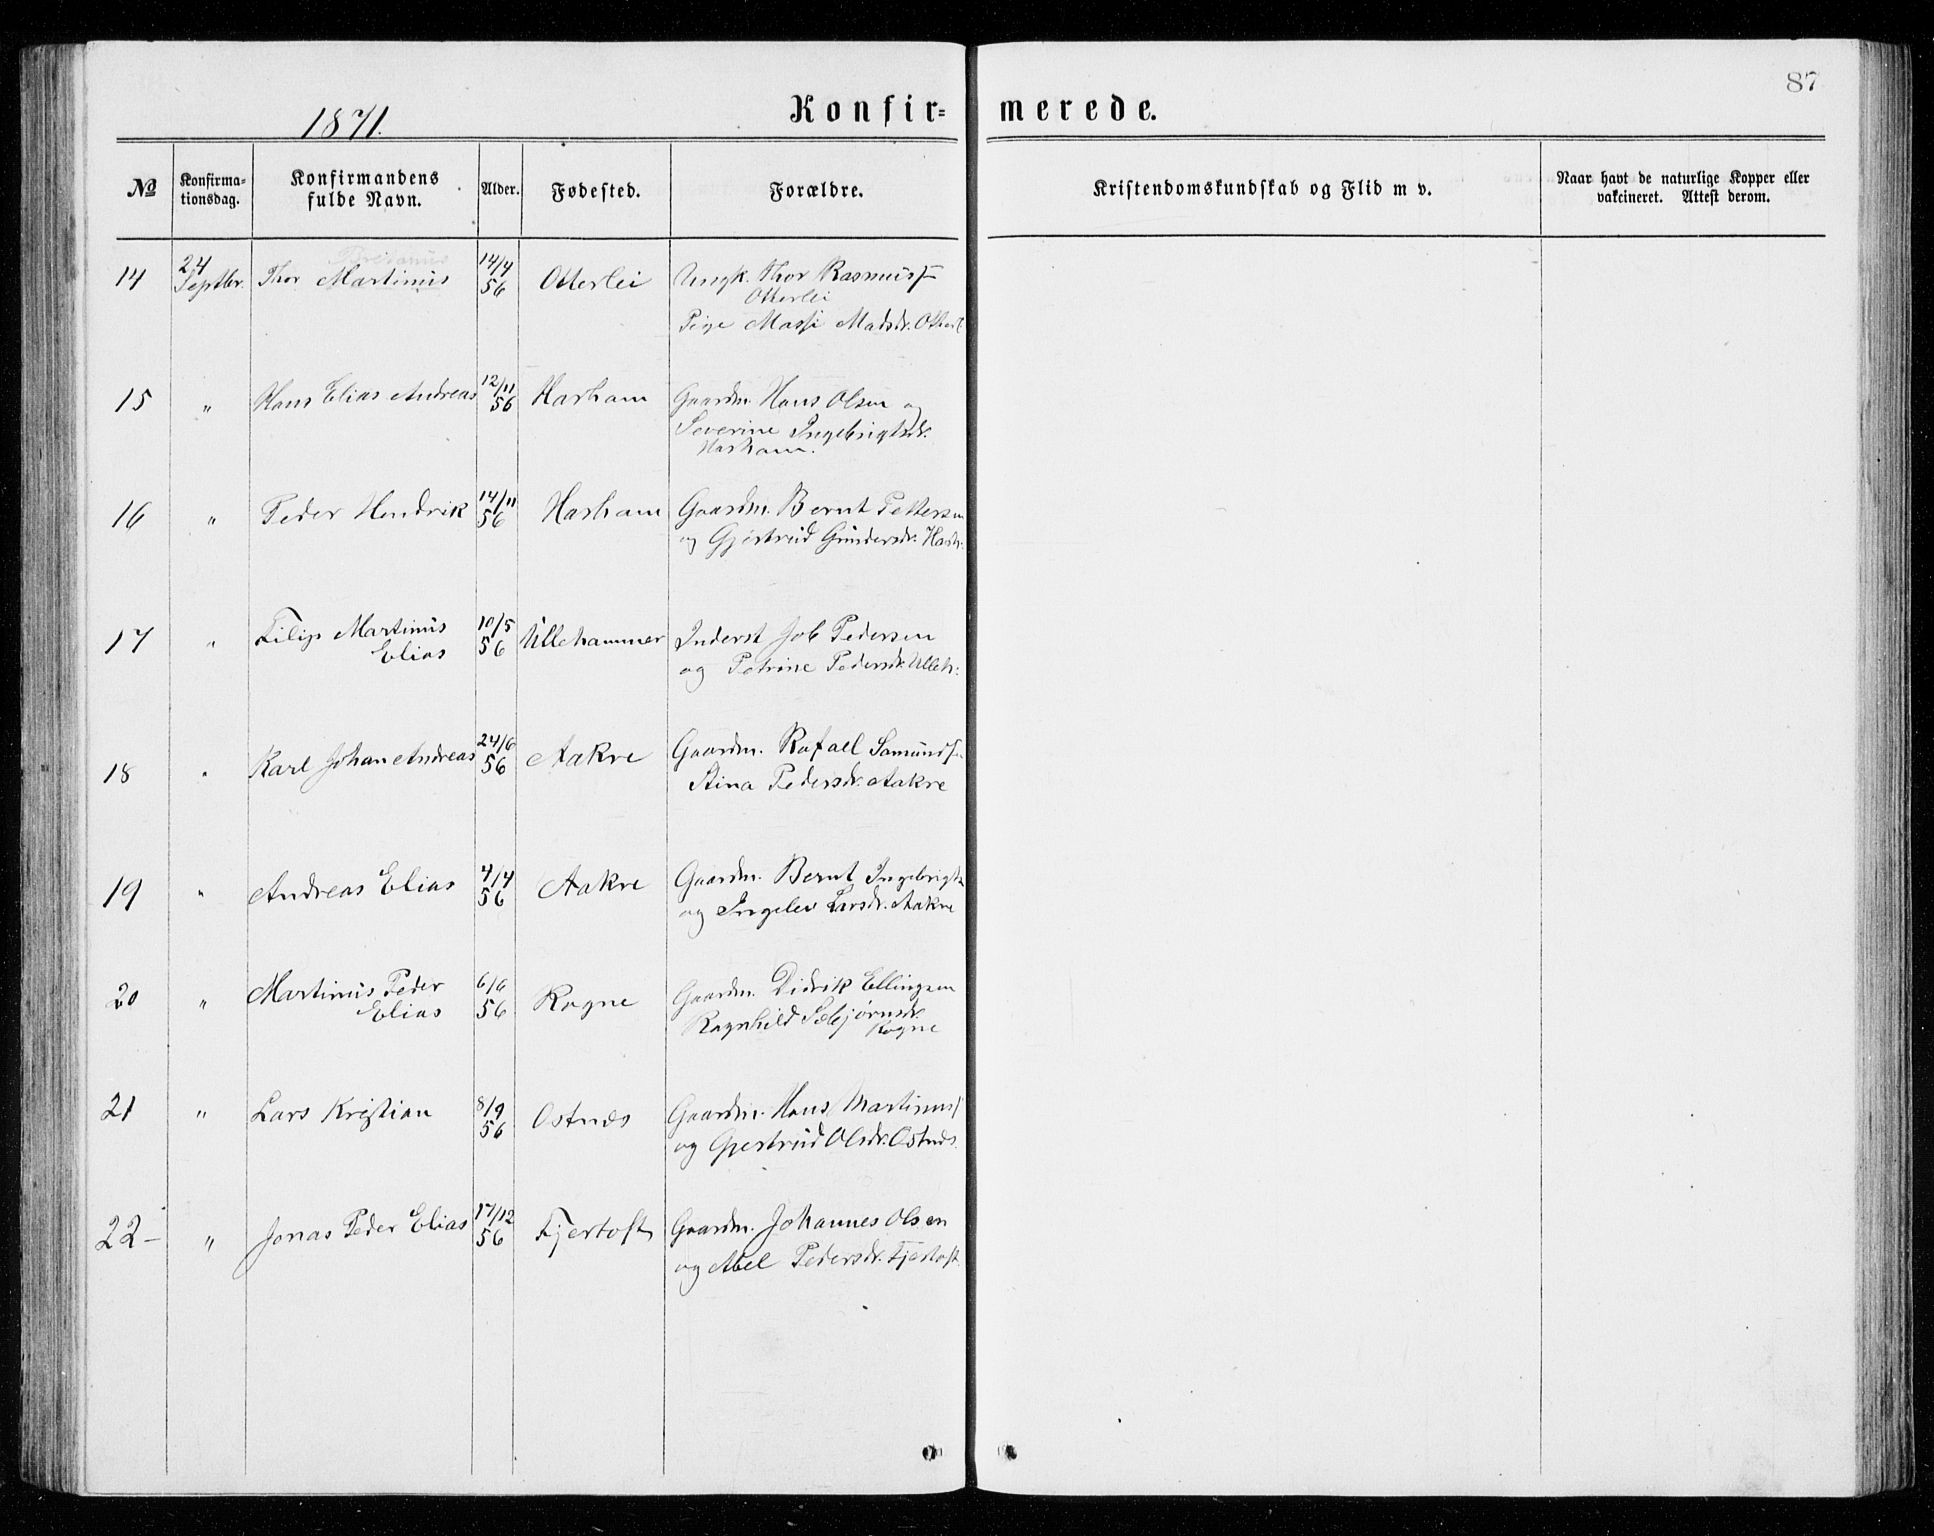 87
1871. Konfir= merede.
№ Konfirma=tionsdag. Konfirmandens fulde Navn. Alder. Fødested. Forældre. Kristendomskundskab og Flid m v. Naar havt de naturlige Kopper eller vakcineret. Attest derom.
14 24 Septbr. Thor Martinus 14/4 56 Otterlei Ungk. Thor Rasmuss
Otterlei
Pige Massi Madsdr. Otterl
15 " Hans Elias Andreas 12/11 56 Harham Gaardm. Hans Olsen og
Severine Ingebrigtsdr.
Harham.
16 " Peder Hendrik 14/11 56 Harham Gaardm. Bernt Pettersen
og Gjertrud Gundersdr. Harh.
17 " Filip Martinus 10/5 56 Ullehammer Inderst Job Pedersen
Elias og Petrine Pedersdr. Ulleh:
18 " Karl Johan Andreas 24/6 56 Aakre Gaardm. Rafael Samunds.
Stina Pedersdr. Aakre
19 " Andreas Elias 4/4 56 Aakre Gaardm. Bernt Ingebrigts
og Ingelev Larsdr. Aakre
20 " Martinus Peder 6/6 56 Rogne Gaardm. Didrik Ellingsen
Elias Ragnhild Sebjørnsdr.
Rogne
21 " Lars Kristian 8/9 56 Ostnæs Gaardm. Hans Martinus
og Gjertrud Olsdr. Ostnæs.
22- " Jonas Peder Elias 17/12 56 Fjertoft Gaardm. Johannes Olsen
og Abel Pedersdr. Fjertoft.